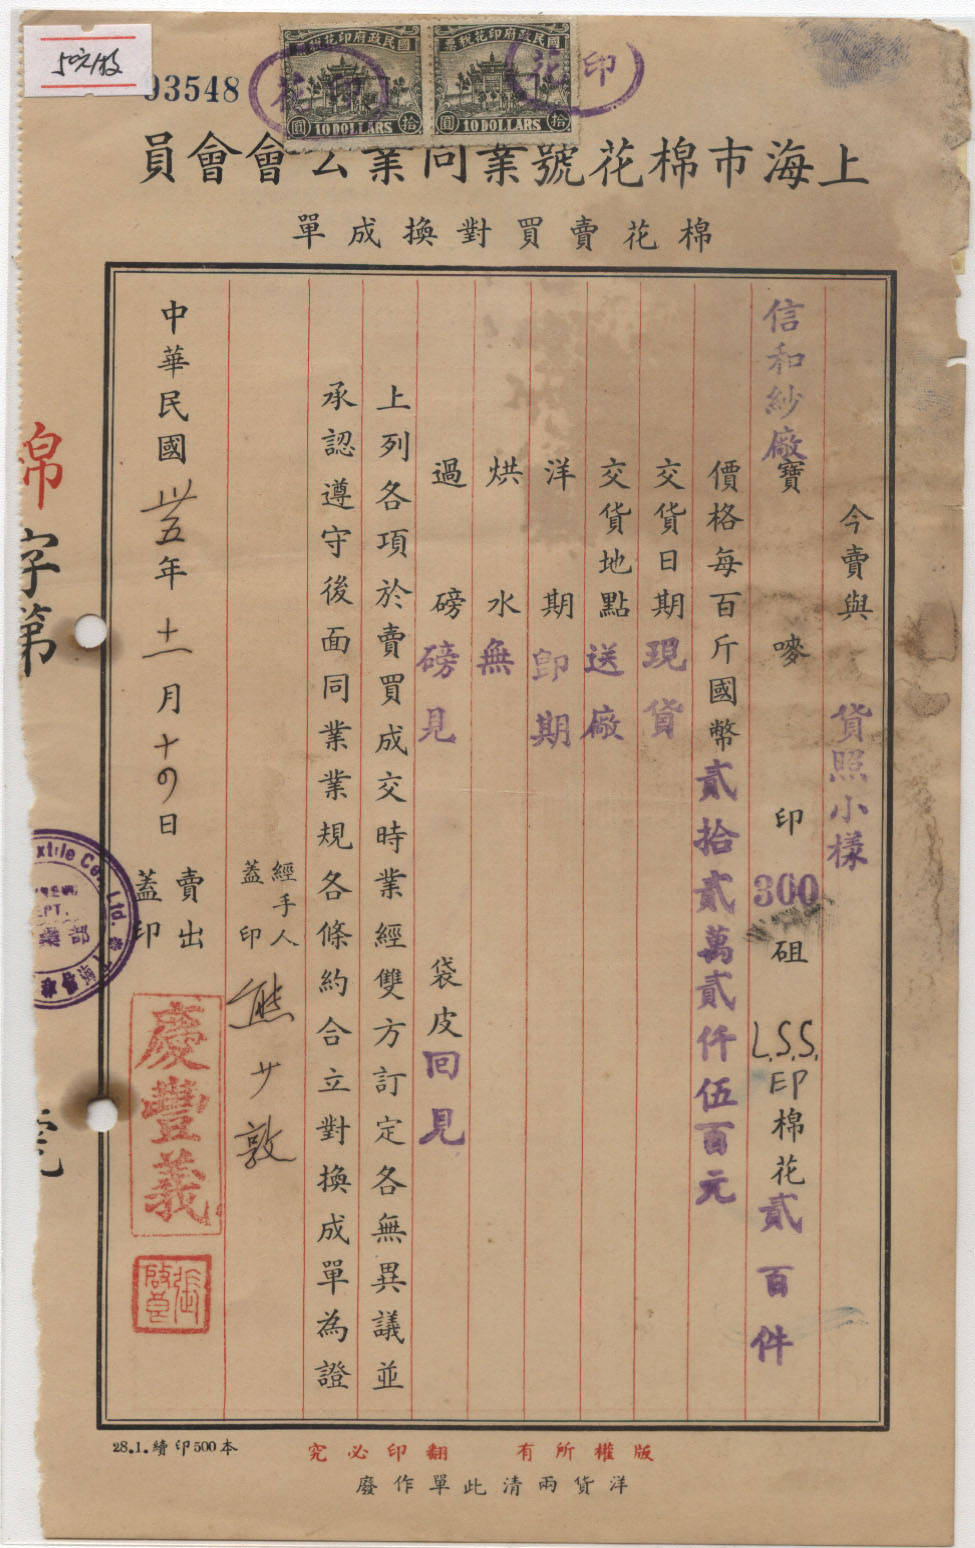 93548
國民政府印花稅票
10 DOLLARS
圓 拾
國民政府印花稅票
10 DOLLARS
圓 拾
印花
印花
上海市棉花號業同業公會會員
棉花賣買對換成單
今賣與 貨照小樣
信和紗廠寶 嘜 印 300 砠 L.S.S. 印棉花貳百件
價格每百斤國幣貳拾貳萬貳仟伍百元
交貨日期現貨
交貨地點送廠
洋期即期
烘水無
過磅磅見 袋皮回見
上列各項於賣買成交時業經雙方訂定各無異議並
承認遵守後面同業業規各條約合立對換成單為證
經手人蓋印 熊少敦
中華民國卅五年十一月十四日
賣出蓋印
慶豐義
棉字第
號
xtile Co., Ltd.
EPT.
業部
版權所有 翻印必究
洋貨兩清此單作廢
28.1.續印500本